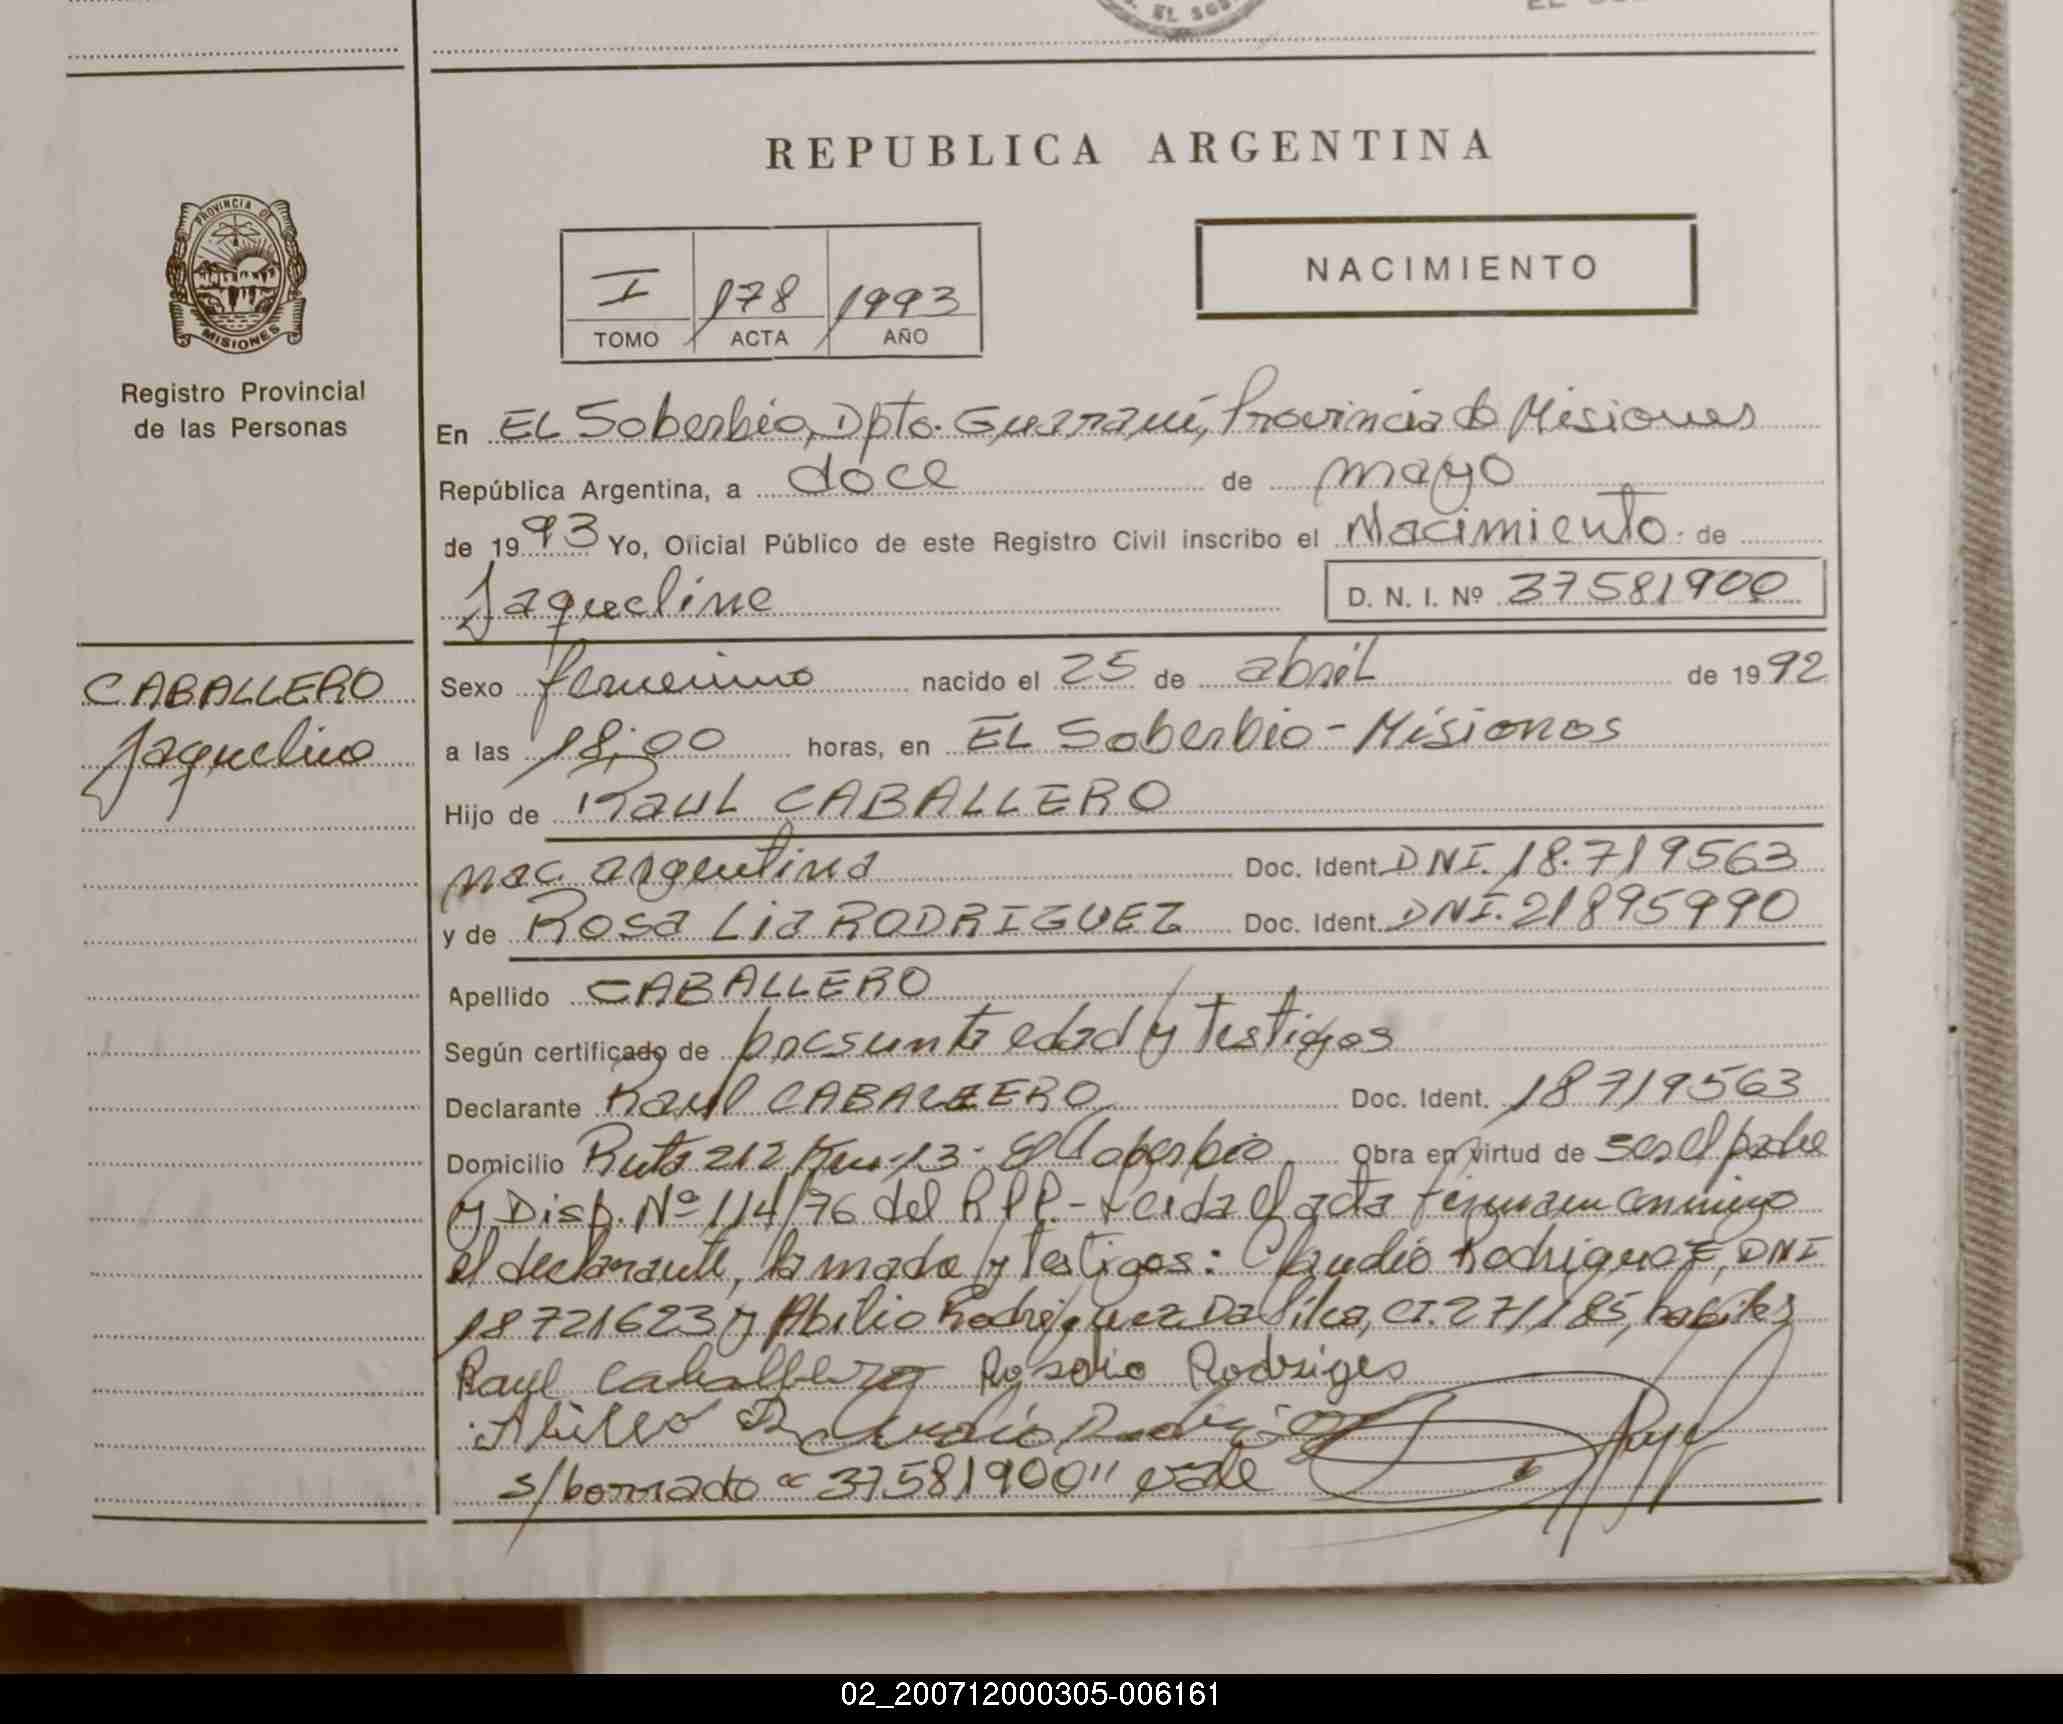 EL SOB
REPUBLICA ARGENTINA
PROVINCIA DE
MISIONES
Registro Provincial
de las Personas
I 178 1993
TOMO ACTA AÑO
NACIMIENTO
En EL Soberbio, Dpto. Guaraní, Provincia de Misiones
República Argentina, a doce de mayo
de 1993 Yo, Oficial Público de este Registro Civil inscribo el Nacimiento de
Jaqueline D. N. I. Nº 37581900
CABALLERO
Jaqueline
Sexo femenino nacido el 25 de abril de 1992
a las 18:00 horas, en EL Soberbio - Misiones
Hijo de Raul CABALLERO
nac. argentina Doc. Ident. DNI. 18.719563
y de Rosa Lia RODRIGUEZ Doc. Ident. DNI. 21895990
Apellido CABALLERO
Según certificado de presunta edad y testigos
Declarante Raul CABALLERO Doc. Ident. 18719563
Domicilio Ruta 212 Km-13- El Soberbio Obra en virtud de ser el padre
y Disp. Nº 114/76 del R.P.P.- Leida el acta firman conmigo
el declarante, la madre y testigos: Claudio Rodriguez, DNI
18721623 y Abilio Rodriguez Da Silva, CI. 271185, habiles
Raul Caballero Rodriges
s/borrado "37581900" vale
02_200712000305-006161